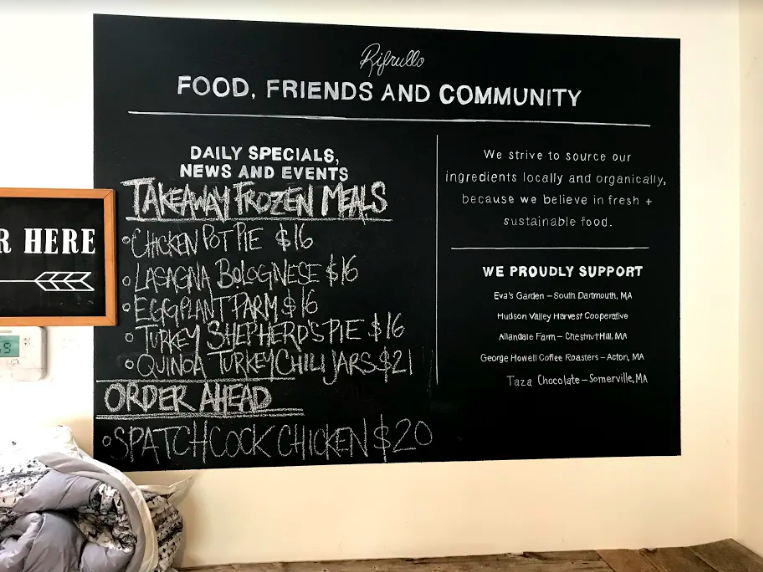 Rifrullo
FOOD, FRIENDS AND COMMUNITY
DAILY SPECIALS,
NEWS AND EVENTS
TAKEAWAY FROZEN MEALS
CHICKEN POT PIE $16
LASAGNA BOLOGNESE $16
EGGPLANT PARM $16
TURKEY SHEPHERD'S PIE $16
QUINOA TURKEY CHILI JARS $21
ORDER AHEAD
SPATCHCOCK CHICKEN $20
We strive to source our
ingredients locally and organically,
because we believe in fresh +
sustainable food.
WE PROUDLY SUPPORT
Eva's Garden – South Dartmouth, MA
Hudson Valley Harvest Cooperative
Allandale Farm – Chestnut Hill, MA
George Howell Coffee Roasters – Acton, MA
Taza Chocolate – Somerville, MA
R HERE